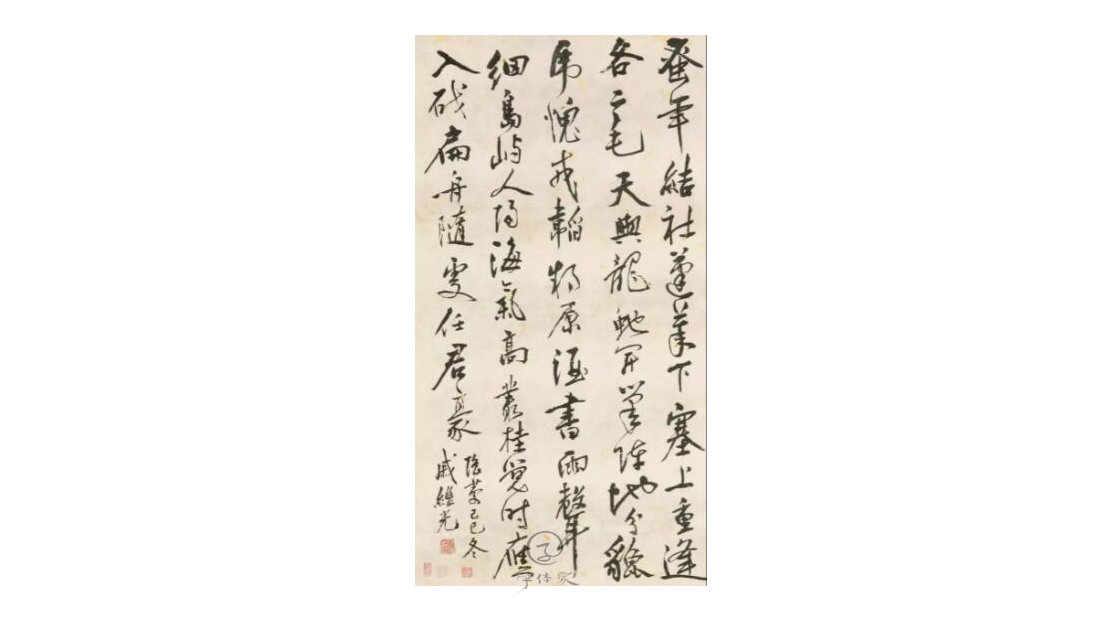 蚤年結社蓬萊下塞上重逢
各二毛天與龍蛇開筆陣地分貔
虎愧戎韜朔原酒盡雨聲
細島嶼人歸海氣高叢桂覺時應
入扁舟隨處任君豪
隆慶己巳冬
戚繼光
字体家